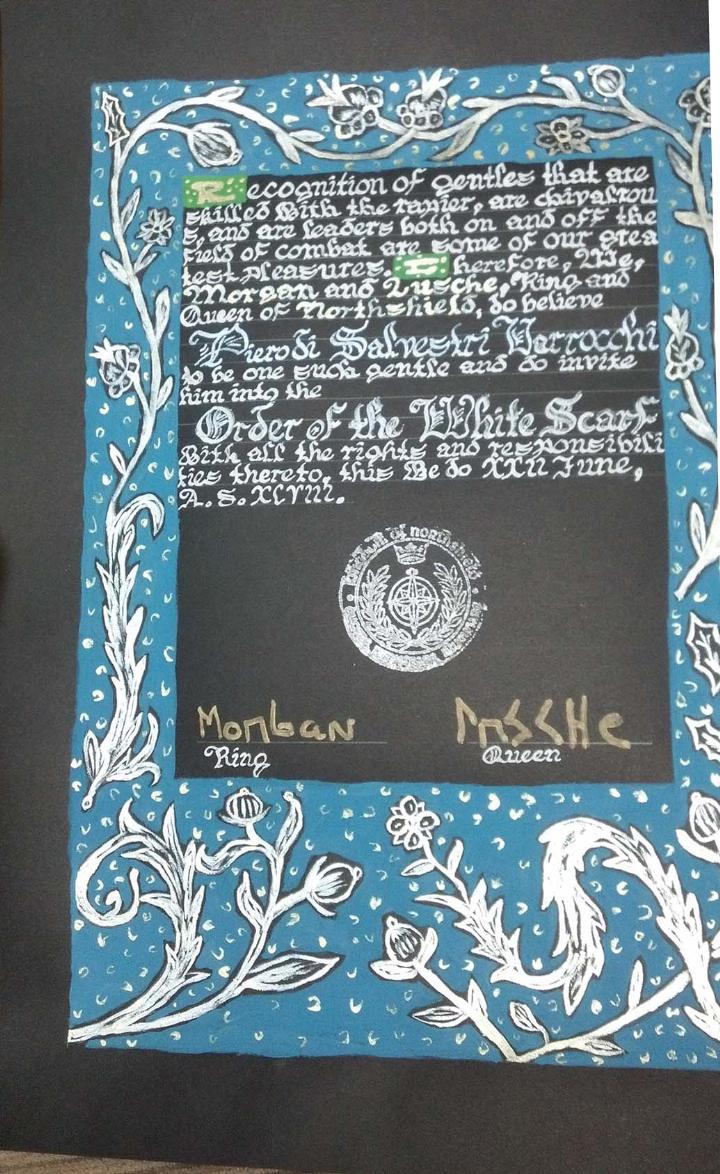 Recognition of gentles that are
skilled With the rapier, are chivalrou
s, and are leaders both on and off the
field of combat are some of our grea
test pleasures. Therefore, We,
Morgan and Lusche, King and
Queen of Northshield, do believe
Piero di Salvestri Varrocchi
to be one such gentle and do invite
him into the
Order of the White Scarf
With all the rights and responsibili
ties thereto, this We do XXII June,
A. S. XLVIII.
of northshield
Morgan Lusche
King Queen